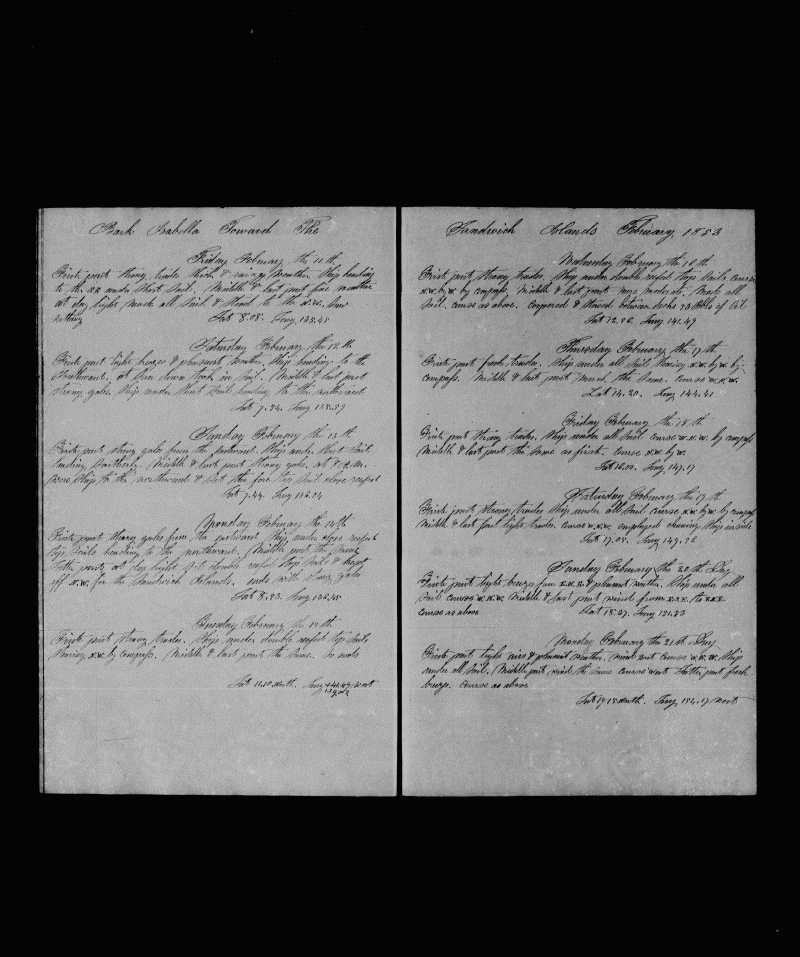 Bark Isabella Toward The
Friday February the 11th
First part strong trades thick & rainy weather. Ship heading
to the SE under short sail. Middle & last part fine weather
at day light made all sail & stood to the N.W. saw
nothing Lat 8.08. Long 135.45
Saturday February the 12th
First part light breeze & pleasant weather, Ship heading to the
Southward. at sun down took in sail. Middle & last part
strong gales. Ship under short sail heading to the northward
Lat 7.54. Long 135.39
Sunday February the 13th
First part strong gales from the eastward. Ship under short sail
heading southerly. Middle & last part strong gales. at 8 A.M.
wore ship to the northward & set the fore top sail close reefed
Lat 7.44. Long 136.24
Monday February the 14th
First part strong gales from the eastward Ship under close reefed
top sails heading to the northward. Middle part the same
latter part at day light set double reefed top sails & kept
off N.W. for the Sandwich Islands. ends with strong gales
Lat 8.53. Long 136.45
Tuesday February the 15th
First part strong trades. Ship under double reefed top sails
steering N.W. by compass. Middle & last part the same. So ends
Lat 11.10 North. Long West
Sandwich Islands February 1853
Wednesday February the 16th
First part strong trades. Ship under double reefed top sails course
N.W. by W. by compass. Middle & last part more moderate. Made all
sail. course as above. coopered & stowed between decks 23 bbls of Oil
Lat 12.50 Long 141.49
Thursday February the 17th
First part fresh trades. Ship under all sail steering N.W. by W. by
compass. Middle & last part much the same. course W.N.W.
Lat 14.20. Long 144.41
Friday February the 18th
First part strong trades. Ship under all sail course W.N.W. by compass
Middle & last part the same as first. course N.W. by W.
Lat 16.00. Long 147.17
Saturday February the 19th
First part strong trades Ship under all sail course N.W. by W. by compass
Middle & last part light trades. course W.N.W. employed cleaning ship inside
Lat 17.05. Long 149.36
Sunday February the 20th Day
First part light breeze from & pleasant weather. Ship under all
sail course W.N.W. Middle & last part winds from to
course as above Lat 18.27. Long 151.53
Monday February the 21st Day
First part light airs & pleasant weather. wind east course W.N.W. Ship
under all sail. Middle part wind the same course West latter part fresh
breeze. course as above
Lat 19.15 North. Long 154.17 West